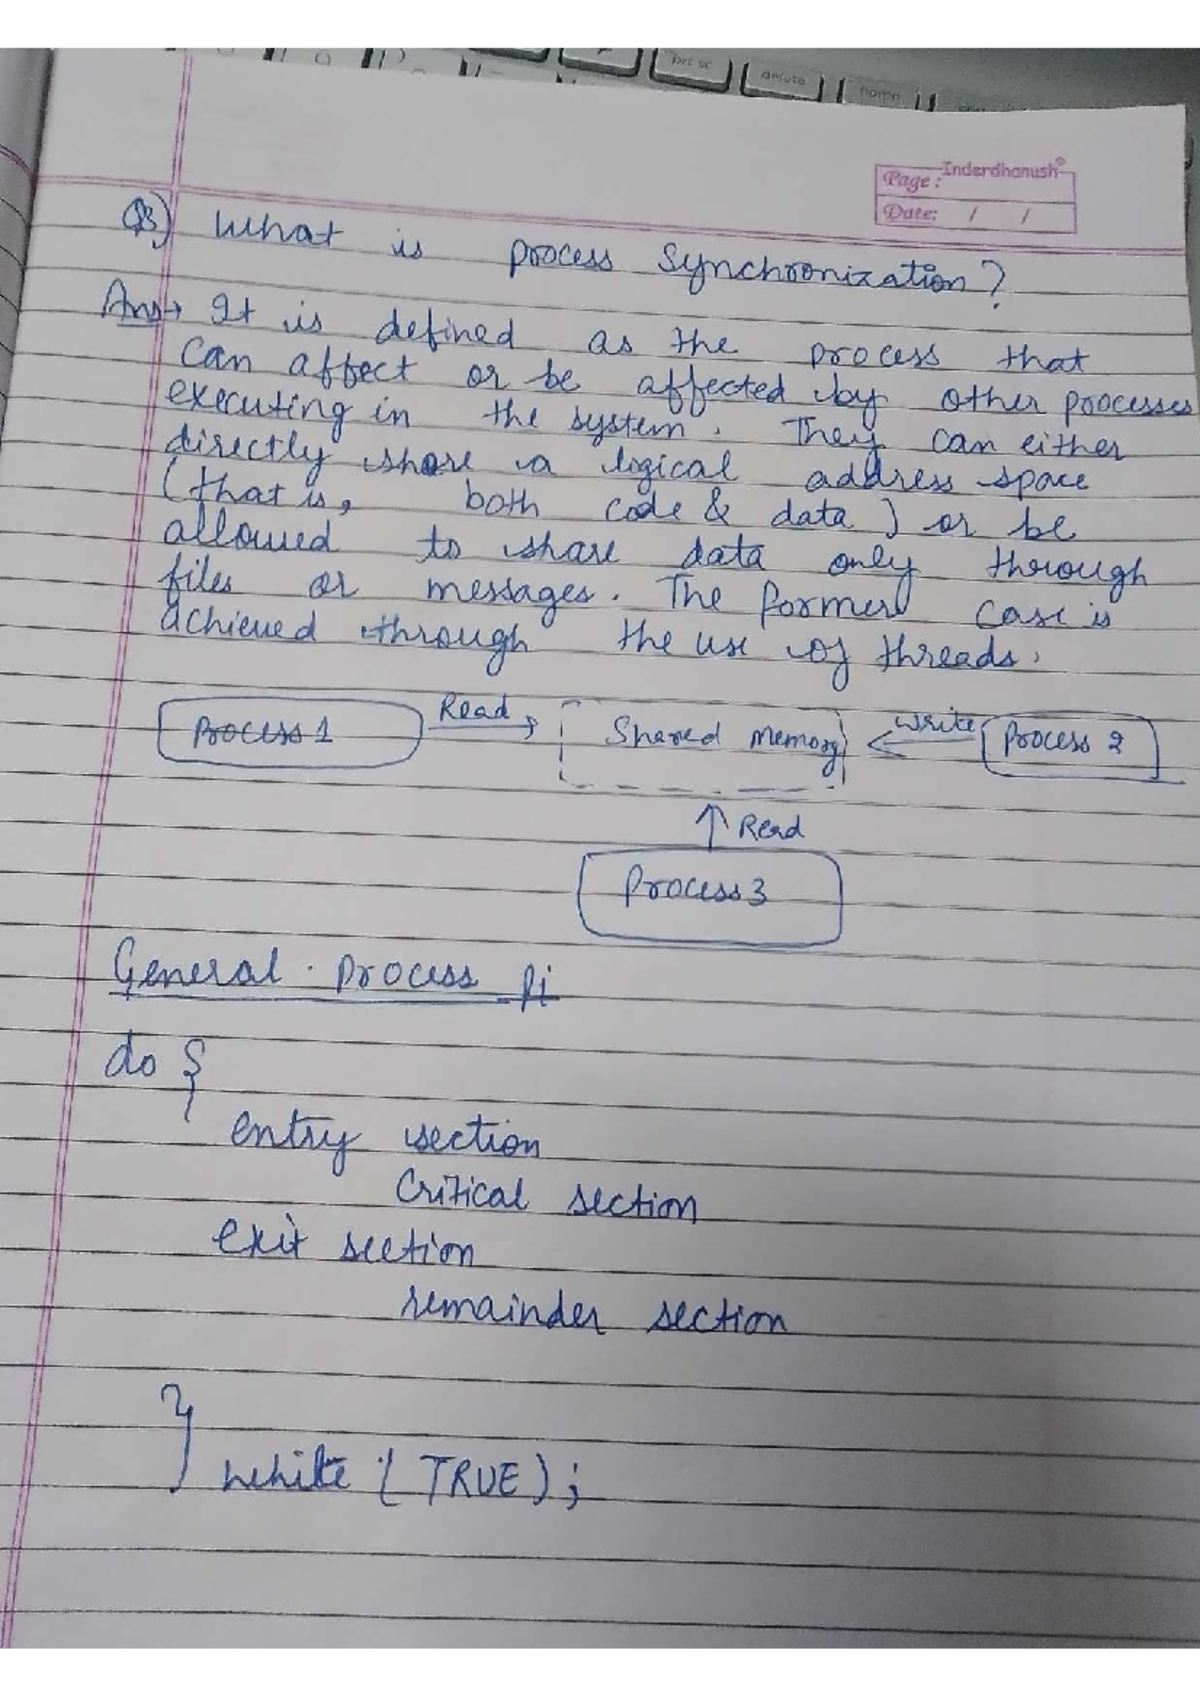 prt sc
delete
home
Inderdhanush
Page:
Date: / /
Q3) What is process Synchronization?
Ans→ It is defined as the process that
can affect or be affected by other processes
executing in the system. They can either
directly share a logical address space
(that is, both code & data) or be
allowed to share data only through
files or messages. The former case is
achieved through the use of threads.
Process 1 Read Shared memory Write Process 2
Read
Process 3
General process Pi
do {
entry section
critical section
exit section
remainder section
} while (TRUE);